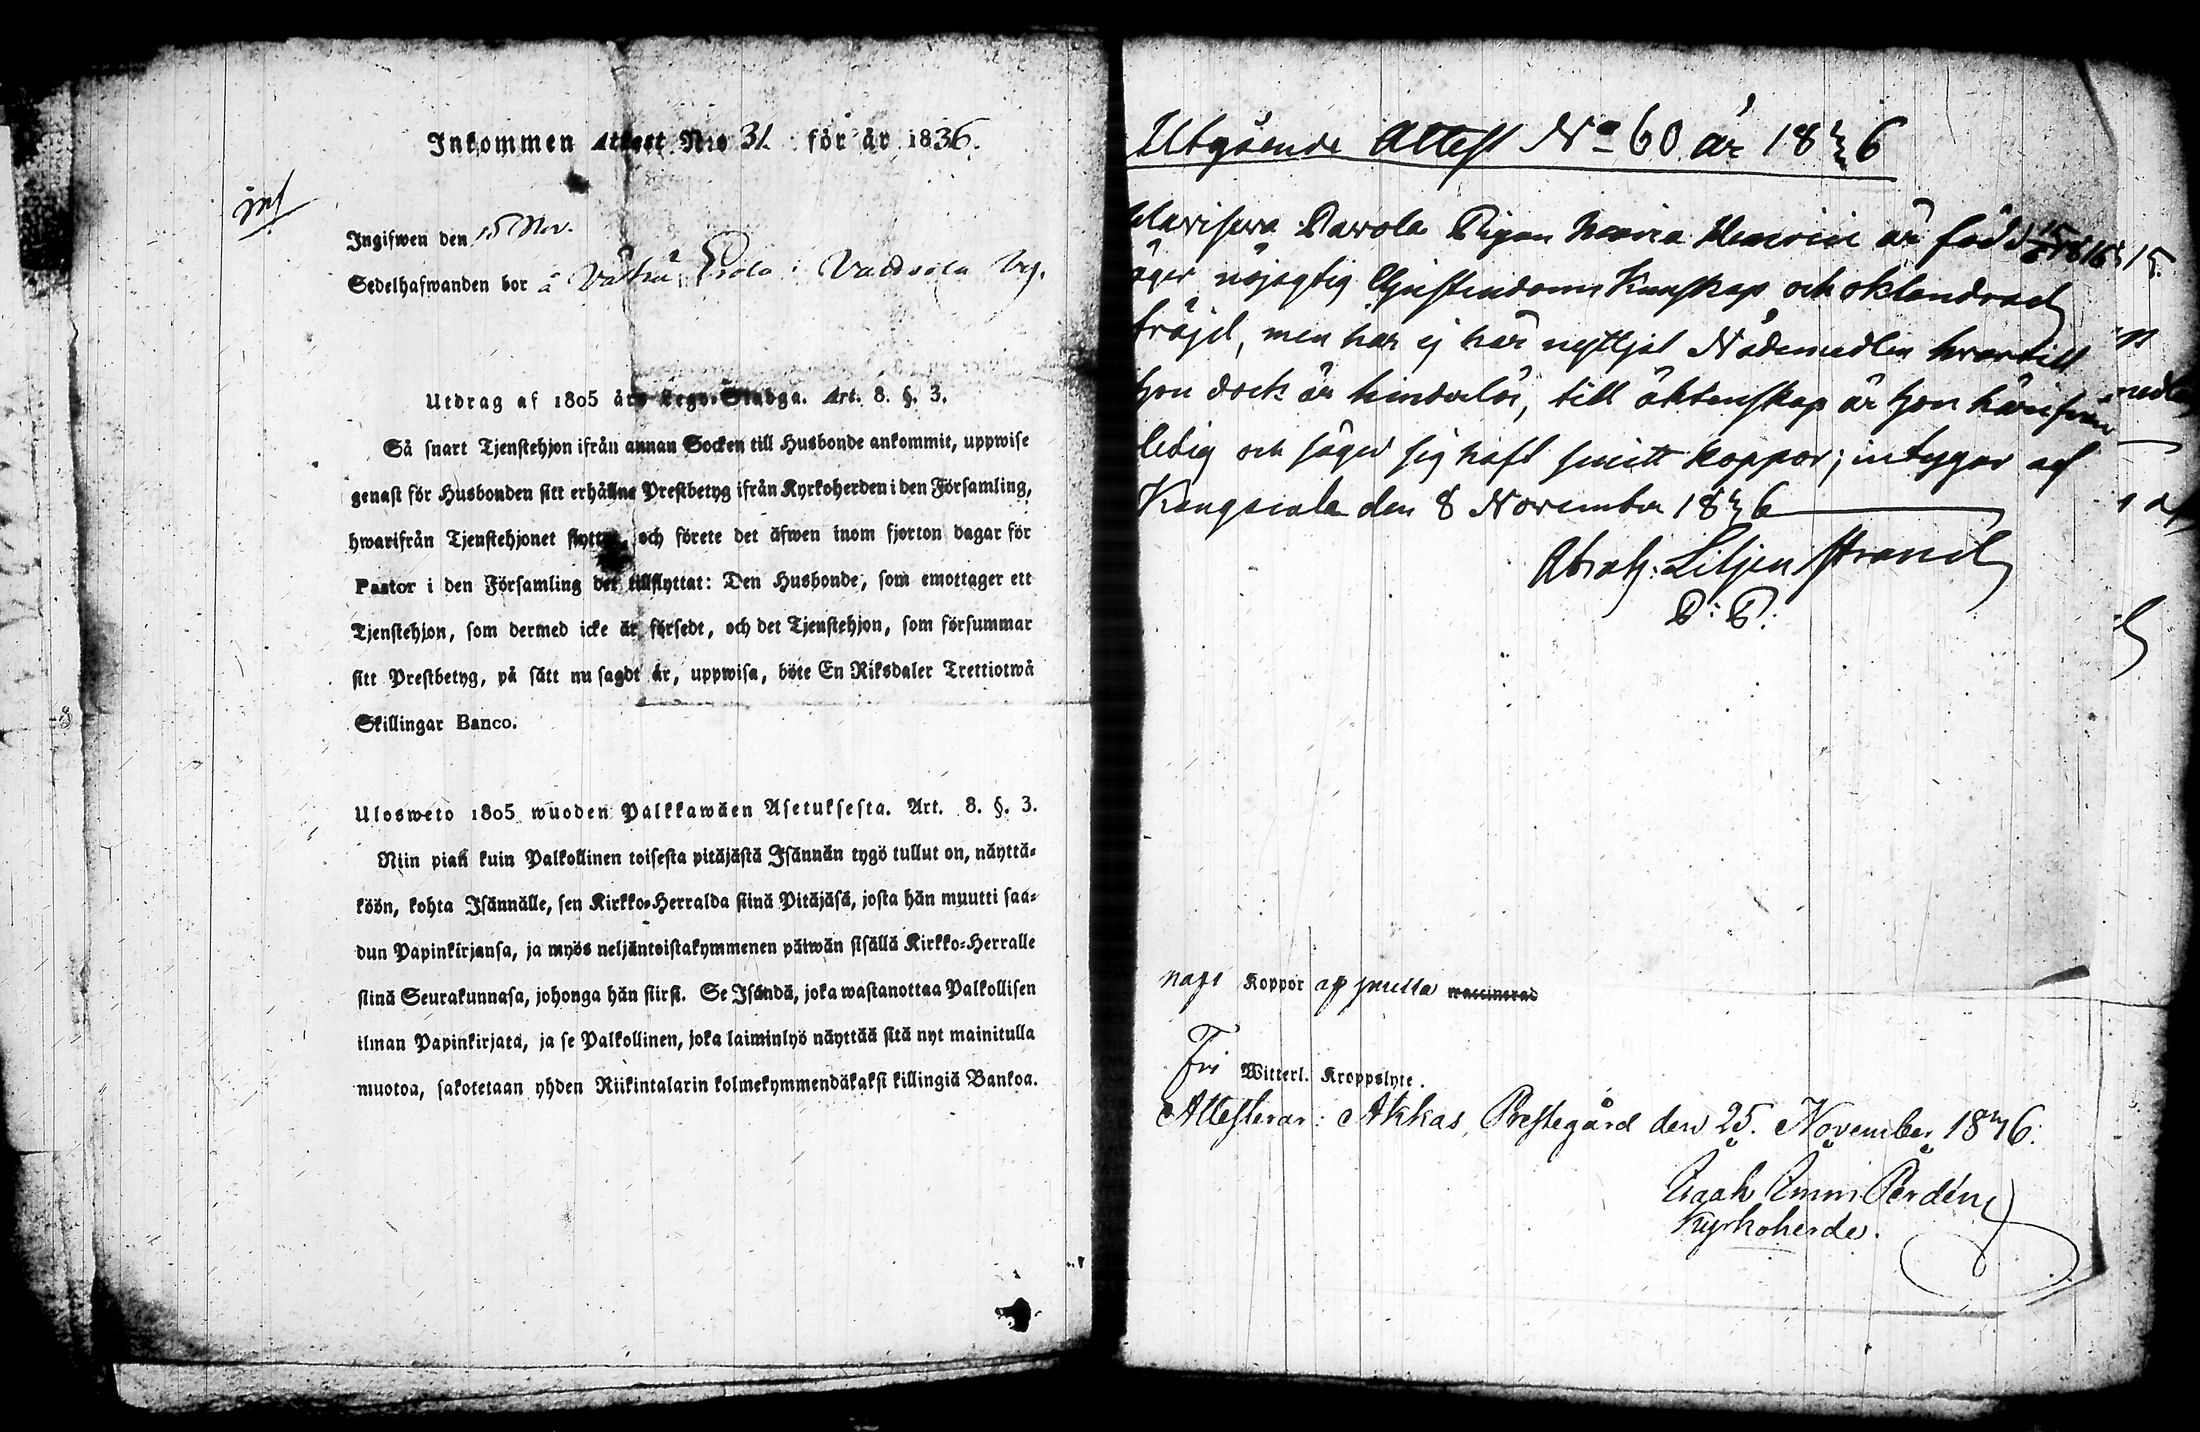 Inkommen Attest N:o 31. för år 1836.
Ingifwen den 15 Nov.
Sedelhafwanden bor å
Utdrag af 1805 års Lego-Stadga. Art. 8. §. 3.
Så snart Tjenstehjon ifrån annan Socken till Husbonde ankommit, uppwise
genast för Husbonden sitt erhållne Prestbetyg ifrån Kyrkoherden i den Församling,
hwarifrån Tjenstehjonet flyttat, och förete det äfwen inom fjorton dagar för
Pastor i den Församling det tillflyttat: Den Husbonde, som emottager ett
Tjenstehjon, som dermed icke är försedt, och det Tjenstehjon, som försummar
sitt Prestbetyg, på sätt nu sagdt är, uppwisa, böte En Riksdaler Trettiotwå
Skillingar Banco.
Ulosweto 1805 wuoden Palkkawäen Asetuksesta. Art. 8. §. 3.
Niin pian kuin Palkollinen toisesta pitäjästä Isännän tygö tullut on, näyttä-
köön, kohta Isännälle, sen Kirkko-Herralda siinä Pitäjäsä, josta hän muutti saa-
dun Papinkirjansa, ja myös neljäntoistakymmenen päiwän sisällä Kirkko-Herralle
siinä Seurakunnasa, johonga hän siirsi. Se Isändä, joka wastanottaa Palkollisen
ilman Papinkirjata, ja se Palkollinen, joka laiminlyö näyttää sitä nyt mainitulla
muotoa, sakotetaan yhden Riikintalarin kolmekymmendäkaksi killingiä Bankoa.
Utgående Attest No 60 år 1836
Pigan Maria är född
äger nöjagtig Christendoms Kunskap och oklandrad
fräjd, men har ej här nyttjat Nådemedlen hvartill
hon dock är hinderlös, till äktenskap är hon härifrån
ledig och säger sig haft koppor; intygar af
Kangasala den 8 November 1836
Abrah: Liljenstrand
V: P.
haft Koppor waccinerad
Fri Witterl. Kroppslyte.
Attesterar: Akkas Prestegård den 25. November 1836.
Kyrkoherde.